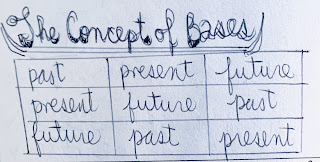 The Concept of Bases
past present future
present future past
future past present